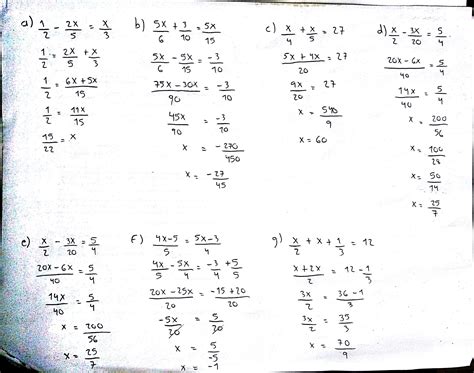 a) 1/2 - 2x/5 = x/3
1/2 = 2x/5 + x/3
1/2 = 6x+5x/15
1/2 = 11x/15
15/22 = x
b) 5x/6 + 3/10 = 5x/15
5x/6 - 5x/15 = -3/10
75x-30x/90 = -3/10
45x/90 = -3/10
x = -270/450
x = -27/45
c) x/4 + x/5 = 27
5x+4x/20 = 27
9x/20 = 27
x = 540/9
x = 60
d) x/2 - 3x/20 = 5/4
20x-6x/40 = 5/4
14x/40 = 5/4
x = 200/56
x = 100/28
x = 50/14
x = 25/7
e) x/2 - 3x/20 = 5/4
20x-6x/40 = 5/4
14x/40 = 5/4
x = 200/56
x = 25/7
f) 4x-5/5 = 5x-3/4
4x/5 - 5x/4 = -3/4 + 5/5
20x-25x/20 = -15+20/20
-5x/20 = 5/20
x = 5/-5
x = -1
g) x/2 + x + 1/3 = 12
x+2x/2 = 12 - 1/3
3x/2 = 36-1/3
3x/2 = 35/3
x = 70/9